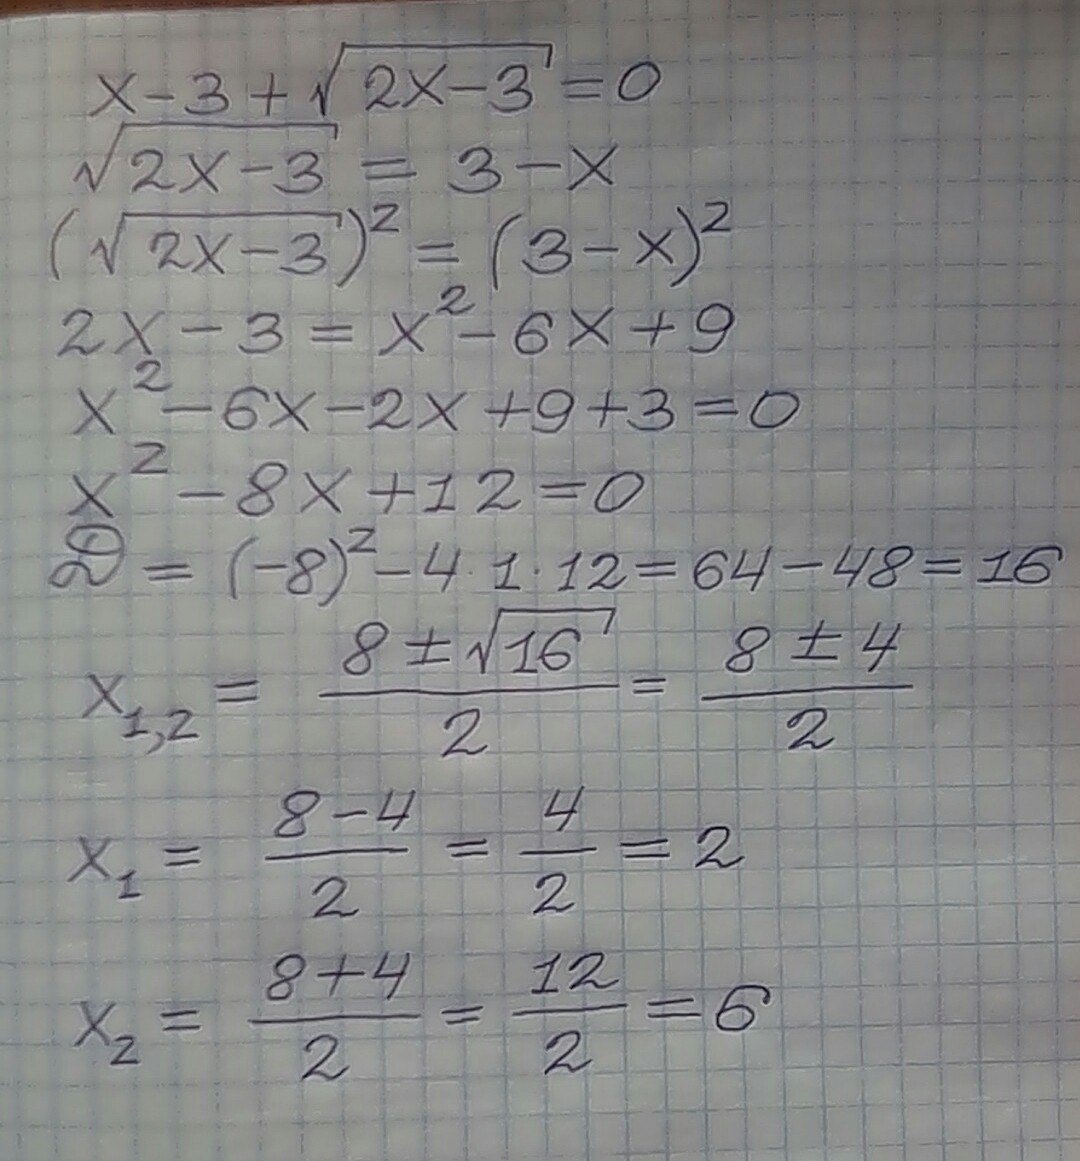 x-3+√(2x-3)=0
√(2x-3) = 3-x
(√(2x-3))² = (3-x)²
2x-3 = x²-6x+9
x²-6x-2x+9+3=0
x²-8x+12=0
D = (-8)²-4·1·12=64-48=16
x₁,₂ = (8±√16)/2 = (8±4)/2
x₁ = (8-4)/2 = 4/2 = 2
x₂ = (8+4)/2 = 12/2 = 6